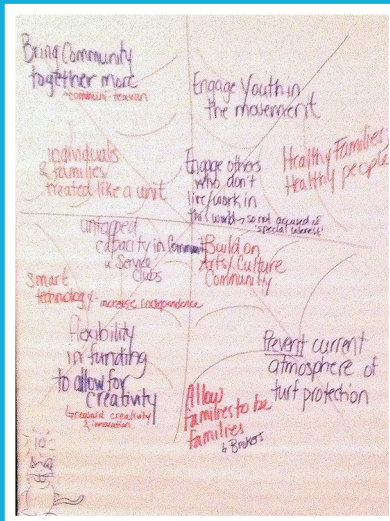 Bring Community
together more
Engage Youth in
the movement
individuals
& families
treated like a unit
Engage others
who don't
live/work in
this world → so not accused of
'special interest'
Healthy Families,
Healthy people
untapped
capacity in Community
Service
Clubs
Build on
Arts/Culture
Community
smart
technology - increase independence
flexibility
in funding
to allow for
creativity
↳ reward creativity
& innovation
Prevent current
atmosphere of
turf protection
Allow
families to be
families
↳ Brokers